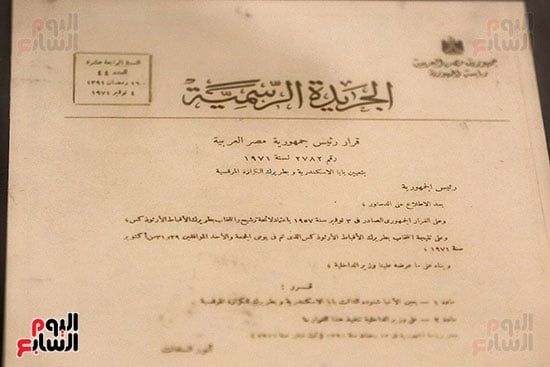 جمهورية مصر العربية
رياسة الجمهورية
السنة الرابعة عشرة
العدد ٤٤
١٦ رمضان ١٣٩١
٤ نوفمبر ١٩٧١
الجريدة الرسمية
قرار رئيس جمهورية مصر العربية
رقم ٢٧٨٢ لسنة ١٩٧١
بتعيين بابا الاسكندرية و بطريرك الكرازة المرقسية
رئيس الجمهورية
بعد الاطلاع على الدستور ؛
وعلى القرار الجمهورى الصادر فى ٣ نوفمبر سنة ١٩٥٧ باعتماد لائحة ترشيح وانتخاب بطريرك الأقباط الأرثوذكس ؛
وعلى نتيجة انتخاب بطريرك الأقباط الأرثوذكس الذى تم فى يومى الجمعة والأحد الموافقين ٢٩ و٣١ من أكتوبر
سنة ١٩٧١ ؛
وبناء على ما عرضه علينا وزير الداخلية ؛
قرر :
مادة ١ - يعين الأنبا شنوده الثالث بابا الاسكندرية و بطريرك الكرازة المرقسية
مادة ٢ - على وزير الداخلية تنفيذ هذا القرار
أنور السادات
اليوم السابع
اليوم السابع
اليوم السابع
اليوم السابع